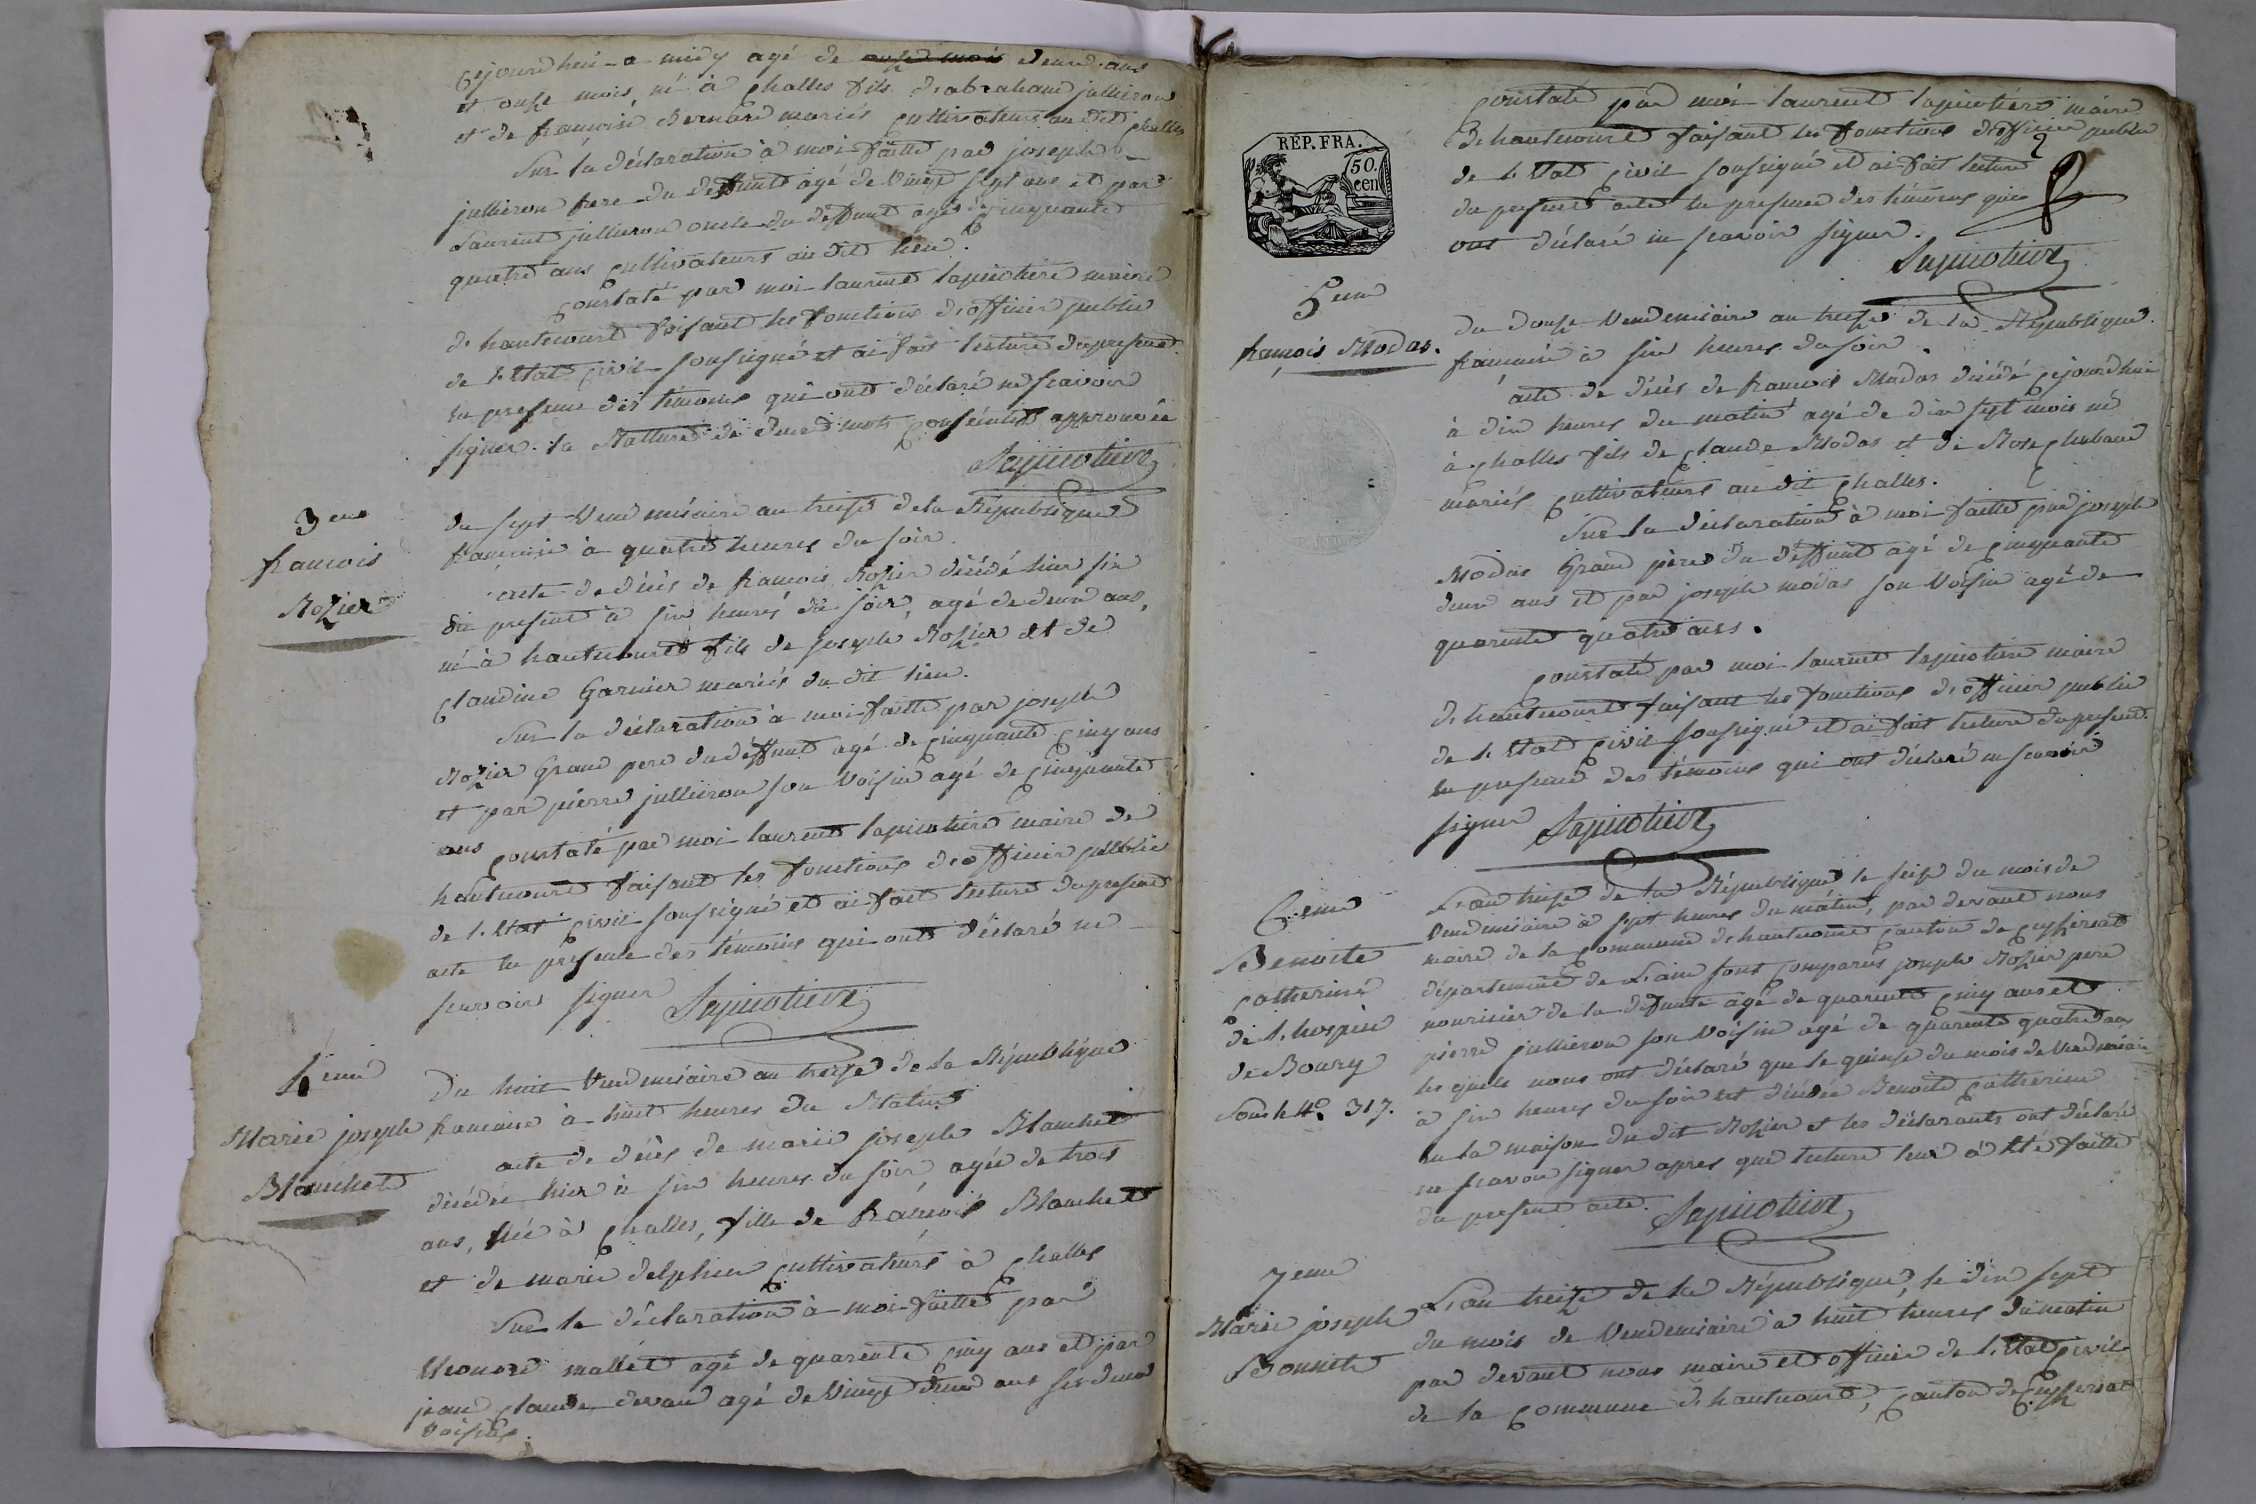 cejourd'hui a midy agé de onze mois deux ans
et onze mois, né à Challes fils d'abraham jullieron
et de françoise Bernard mariés cultivateurs au dit Challes
Sur la déclaration à moi faitte par joseph
jullieron frere du deffunt agé de vingt sept ans et par
Laurent jullieron oncle du deffunt agé de cinquante
quatre ans cultivateurs au dit lieu.
Constaté par moi laurent lapierre maire
de hautecourt faisant les fonctions d'officier public
de l'Etat civil soussigné et ai fait lecture du present
en presence des témoins qui ont déclaré ne scavoir
signer. la Rature de deux mots
approuvée
3eme
francois
Rozier
du sept Vendemiaire an treize de la République
francaise à quatre heures du soir.
acte de décès de francois Rozier décédé hier six
du present à six heures du soir, agé de deux ans,
né à hautecourt fils de joseph Rozier et de
Claudine Garnier mariés du dit lieu.
Sur la déclaration à moi faitte par joseph
Rozier Grand pere du deffunt agé de cinquante cinq ans
et par pierre jullieron son voisin agé de cinquante
ans constaté par moi laurent maire de
hautecourt faisant les fonctions d'officier public
de l'Etat civil soussigné et ai fait lecture du present
acte en presence des témoins qui ont déclaré ne
scavoir signer
4eme
Marie joseph
Blanchet
Du huit Vendemiaire an treize de la République
francaise à huit heures du Matin
acte de décès de marie joseph Blanchet
décédée hier à six heures du soir, agée de trois
ans, Née à Challes, fille de francois Blanchet
et de marie delphin cultivateurs à Challes
Sur la déclaration à moi faitte par
Leonore mallet agé de quarante cinq ans et par
jean Claude devaud agé de vingt deux ans ses deux
voisins.
REP. FRA.
50.
cen
2
constaté par moi laurent maire
de hautecourt faisant les fonctions d'officier public
de l'Etat civil soussigné et ai fait lecture
du present acte en presence des témoins qui
ont déclaré ne scavoir signer.
5eme
francois Modas.
du douze Vendemiaire an treize de la République
francaise à six heures du soir.
acte de décès de francois Modas décédé cejourd'hui
à dix heures du matin agé de dix sept mois né
à Challes fils de Claude Modas et de Rose Chabaud
mariés cultivateurs au dit Challes.
Sur la déclaration à moi faitte par joseph
Modas Grand père du deffunt agé de cinquante
deux ans et par joseph modas son voisin agé de
quarente quatre ans.
constaté par moi laurent maire
de hautecourt faisant les fonctions d'officier public
de l'Etat civil soussigné et ai fait lecture du present
en presence des témoins qui ont déclaré ne scavoir
signer
6eme
Benoite
Catherine
de l'hospice
de Bourg
Sous le No. 317.
L'an treize de la République le seize du mois de
Vendemiaire à sept heures du matin, par devant nous
maire de la commune de hautecourt canton de Ceyzeriat
département de L'ain sont comparus joseph Rozier pere
nouricier de la defunte agé de quarente cinq ans et
pierre jullieron son voisin agé de quarente quatre ans
lesquels nous ont déclaré que le quinze du mois de Vendemiaire
à six heures du soir est décédée Benoite Catherine
en la maison du dit Rozier et les déclarants ont déclaré
ne scavoir signer apres que lecture leur a Eté faitte
du present acte.
7eme
Marie joseph
Bonnet
L'an treize de la République, le dix sept
du mois de Vendemiaire à huit heures du matin
par devant nous maire et officier de l'Etat civil
de la commune de hautecourt, canton de Ceyzeriat